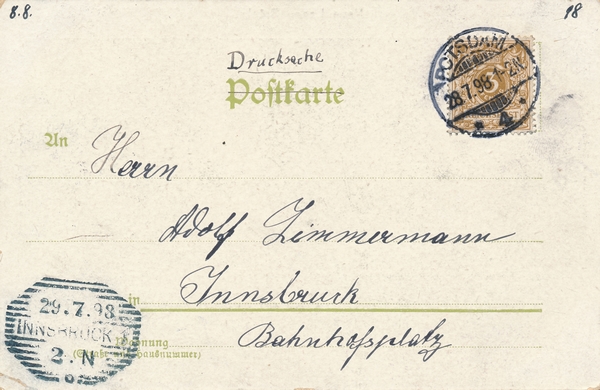 8.8. 18
Drucksache
Postkarte
POTSDAM
28.7.98.1-2N.
* 4.
3
An Herrn
Adolf Zimmermann
in Innsbruck
Wohnung Bahnhofsplatz
(Straße und Hausnummer)
29.7.98
INNSBRUCK 1
2.N